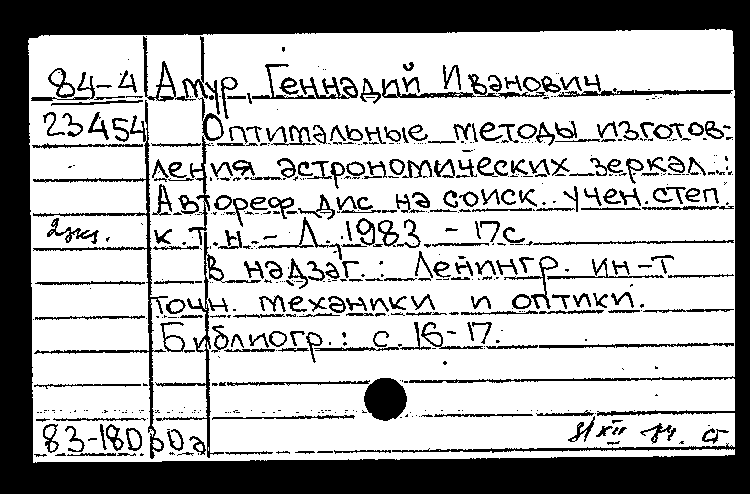 84-4 Амур, Геннадий Иванович.
23454 Оптимальные методы изготов-
ления астрономических зеркал :
Автореф. дис. на соиск. учен. степ.
2экз. к.т.н. - Л., 1983 - 17с.
В надзаг.: Ленингр. ин-т
точн. механики и оптики.
Библиогр.: с. 16-17.
83-18030а